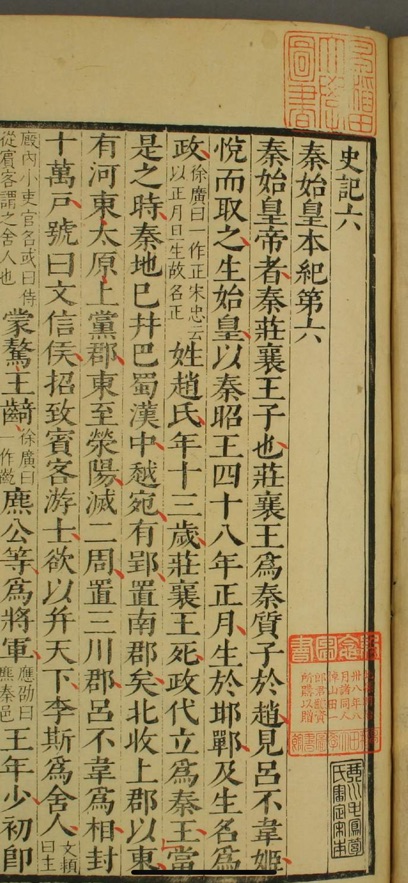 史記六
秦始皇本紀第六
秦始皇帝者秦莊襄王子也莊襄王爲秦質子於趙見呂不韋姬
悅而取之生始皇以秦昭王四十八年正月生於邯鄲及生名爲
政徐廣曰一作正宋忠云以正月旦生故名正姓趙氏年十三歲莊襄王死政代立爲秦王當
是之時秦地已并巴蜀漢中越宛有郢置南郡矣北收上郡以東
有河東太原上黨郡東至滎陽滅二周置三川郡呂不韋爲相封
十萬戶號曰文信侯招致賓客游士欲以并天下李斯爲舍人文穎曰主
廄內小吏官名或曰侍從賓客謂之舍人也蒙驁王齮徐廣曰一作齕麃公等爲將軍應劭曰麃秦邑王年少初即